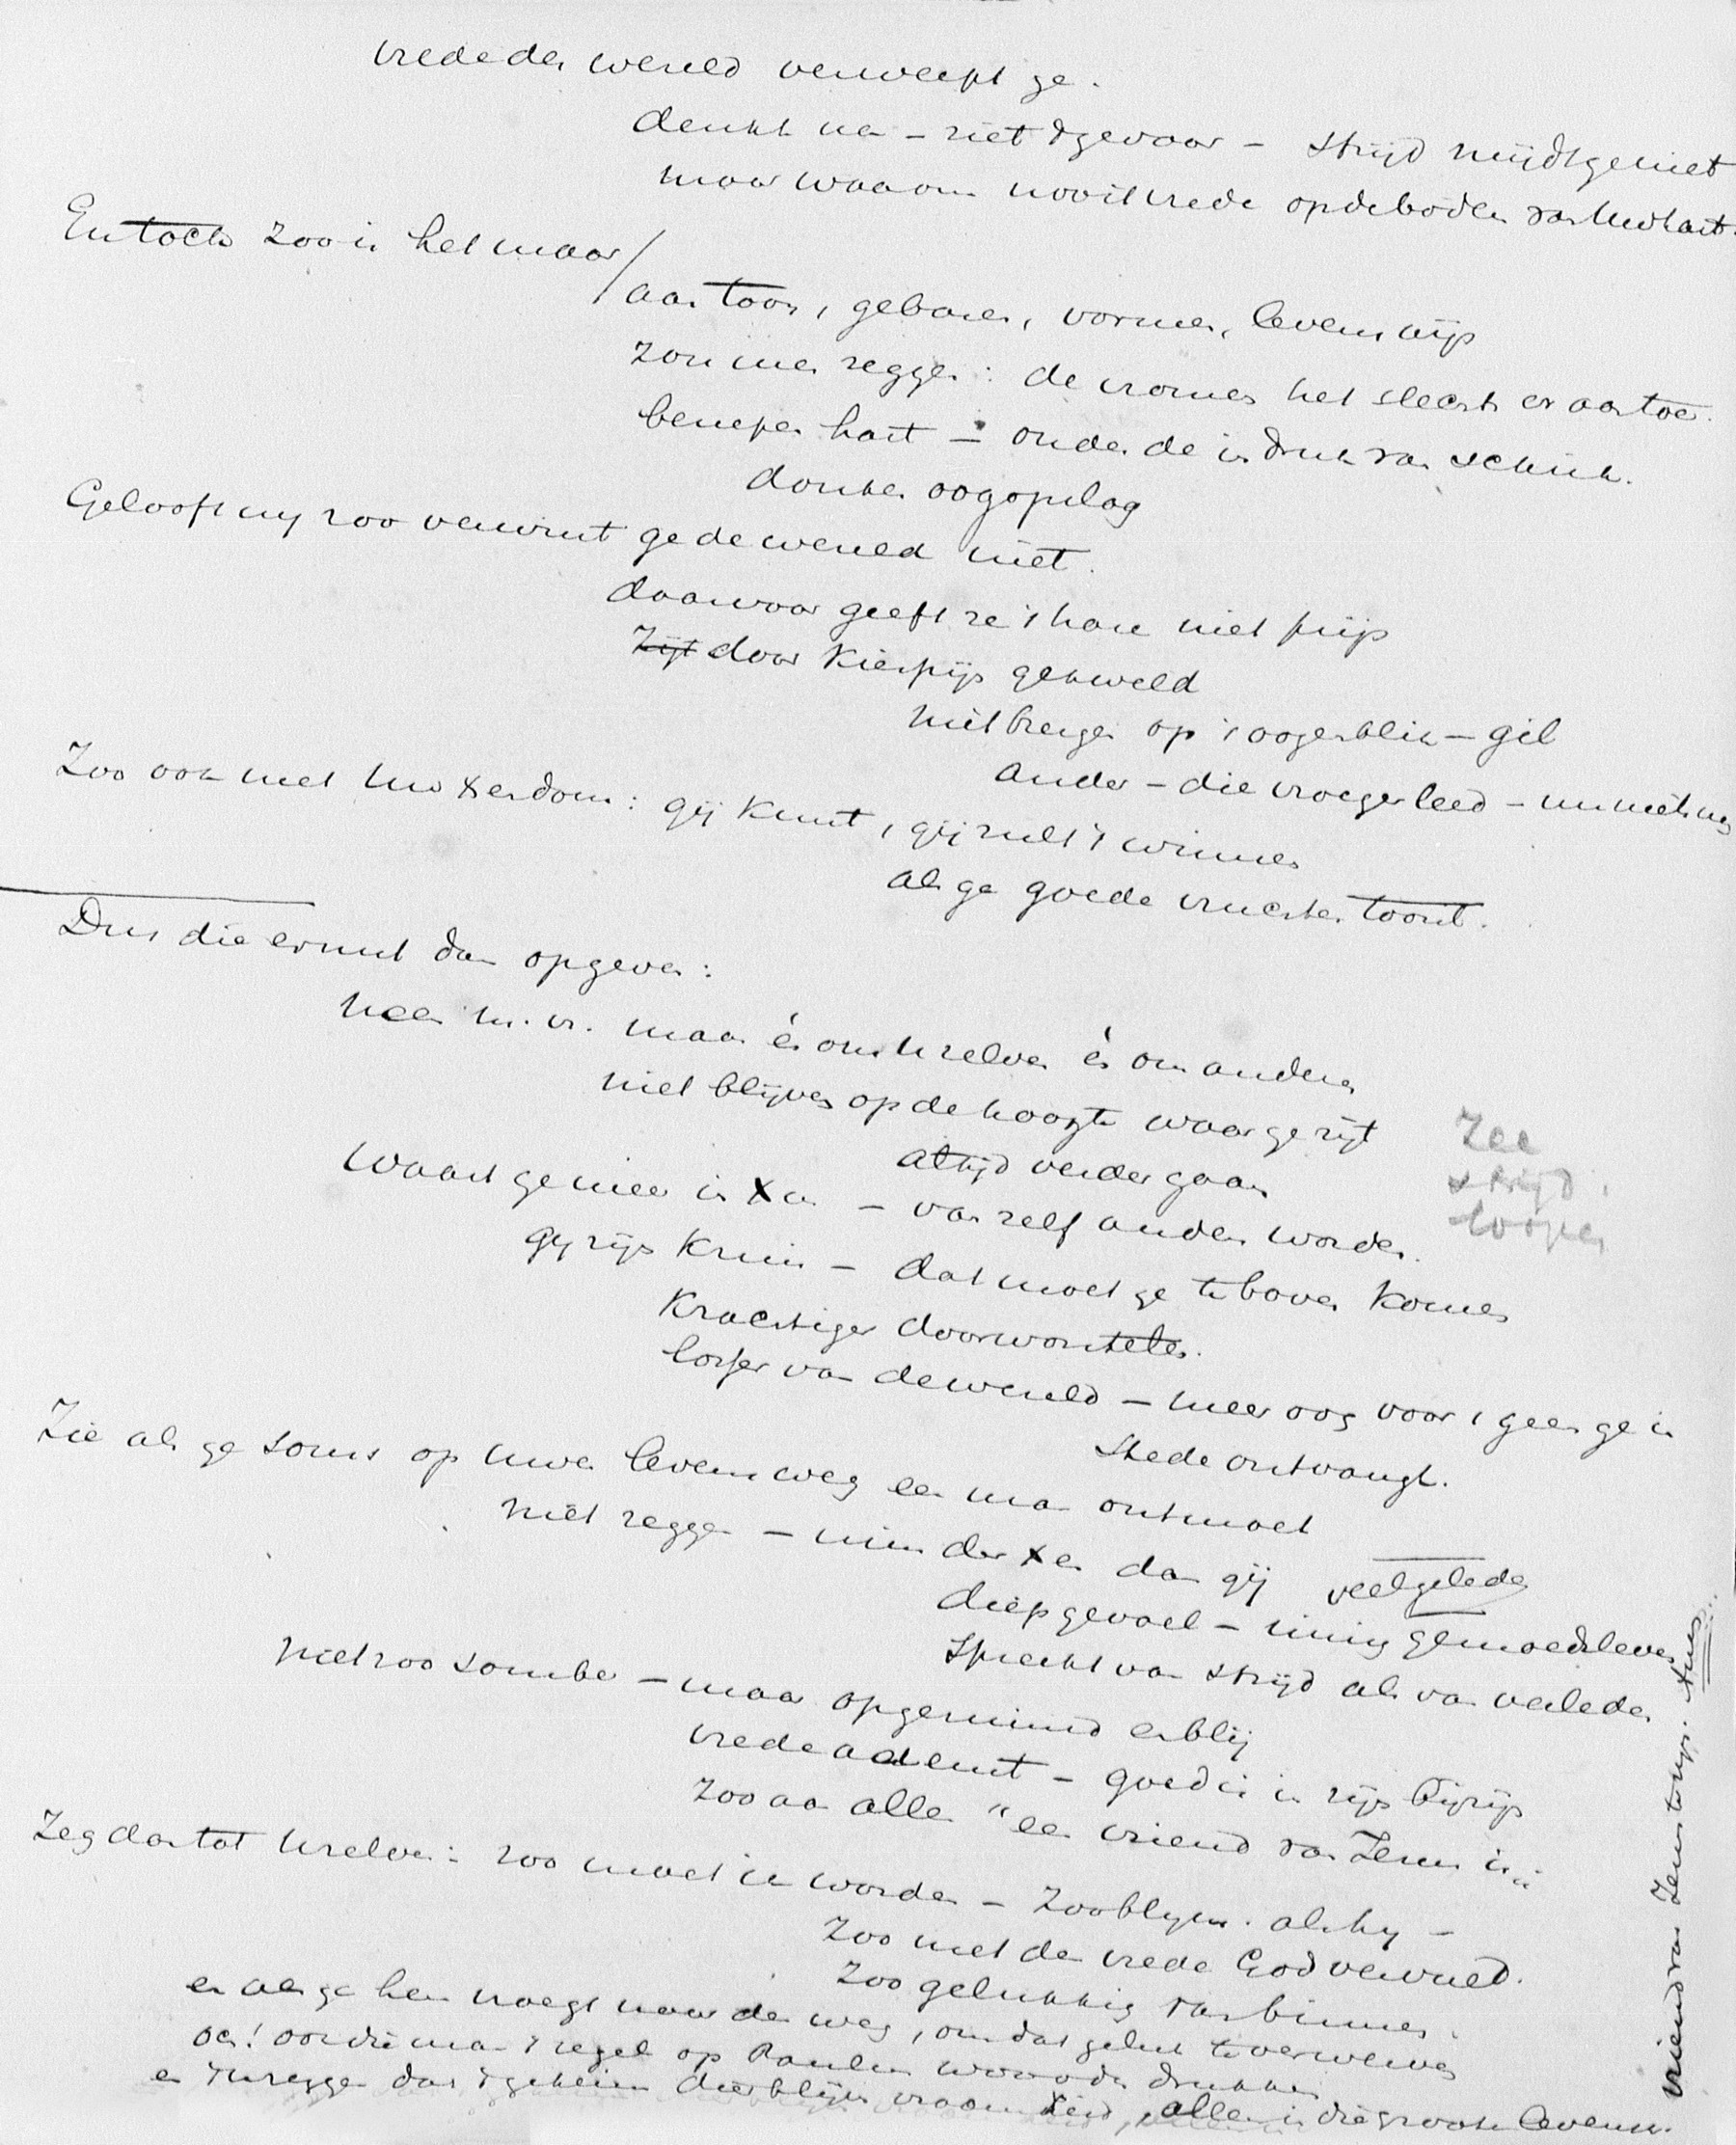 vrede der wereld verwerpt ge.
denkt na – ziet 't gevaar – strijd mijdt ge niet
maar waarom nooit vrede op de bodem van Uw hart.
En toch zoo is het maar /
aan toon, gebaren, vormen, levenswijs
zou men zeggen: de vromen het slechts er aan toe.
benepen hart – onder de indruk van schrik.
donker oogopslag
Gelooft my zoo verwint ge de wereld niet.
daarvoor geeft ze 't hare niet prijs
Zijt door Kiespijn gekweld
niet bengen op 't oogenblik – gil
ander – die vroeger leed – nu niet meer
Zoo ook met Uw Xendom: gij kunt, gij zult 't winnen
als ge goede vruchten toont.
Dus die ernst dan opgeven:
Neen m. vr. maar én om U zelven én om anderen
niet blijven op de hoogte waar ge zijt
altijd verder gaan
Zee
strijd
loopen
Waart ge meer in X en – van zelf anders worden.
Gy zijn Kruis – dat moet ge te boven komen
Krachtiger doorwortelen.
losser van de wereld – meer oog voor 't geen ge in
stede ontvangt.
Zie als ge soms op Uwen levensweg een man ontmoet
niet zeggen – minder Xen dan gij veel geleden
diep gevoel – innig gemoedsleven
spreekt van strijd als van verleden
niet zoo somber – maar opgeruimd en blij
vrede ademt – goed is in zijn bijzijn
zoo aan allen "een vriend van Jezus is"
Zeg dan tot Uzelven: zoo moet ik worden – zoo blymo. als hy –
zoo met den vrede Gods vervuld.
zoo gelukkig van binnen.
en als ge hen vraagt naar den weg, om dat geluk te verwerven
och! ook die man 't zegel op Paulus woorden drukken
en U zeggen dat 't geheim dier blijde vroomheid, alleen in die groote levensw.
vriend van Jezus te zijn. Amen